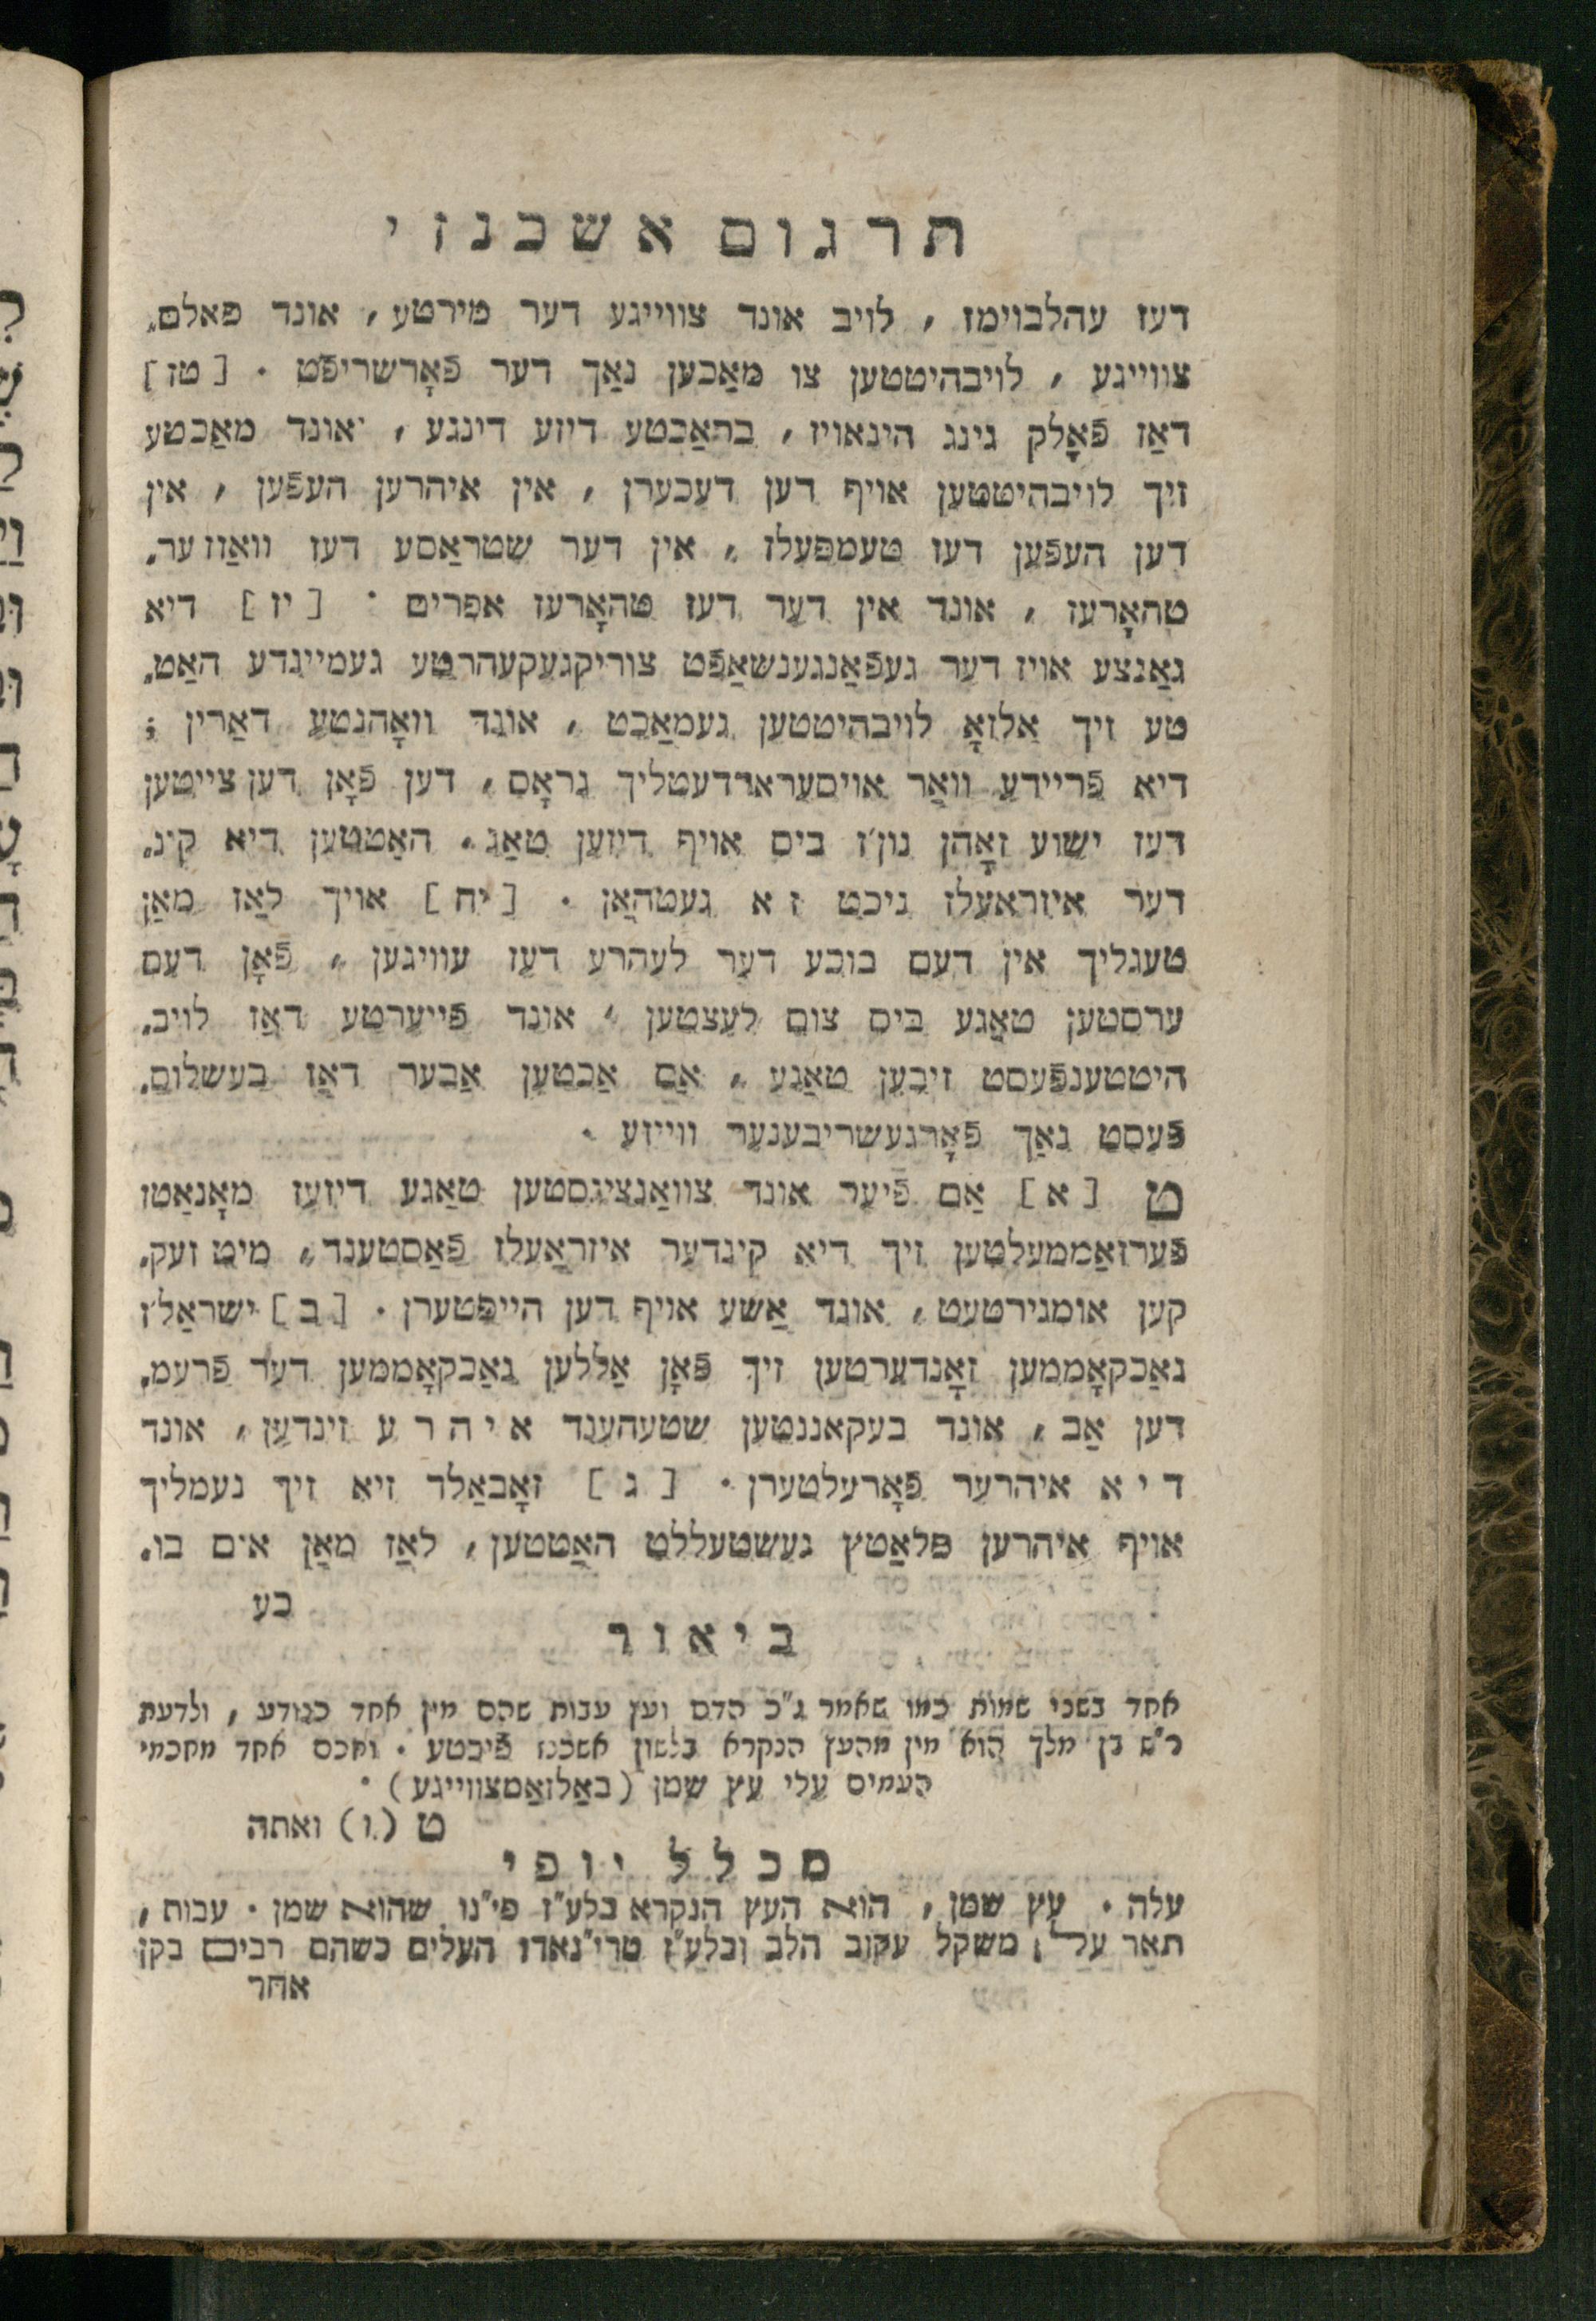 תרגום אשכנזי
דעז עהלבוימז, לויב אונד צווייגע דער מירטע, אונד פאלם⸗
צווייגע, לויבהיטטען צו מאַכען נאַך דער פֿאָרשריפֿט. [טז]
דאַז פֿאָלק גינג הינאויז, בראַכטע דיזע דינגע, אונד מאַכטע
זיך לויבהיטטען אויף דען דעכערן, אין איהרען העפֿען, אין
דען העפֿען דעז טעמפעלז, אין דער שטראַסע דעז וואַזזער⸗
טהאָרעז, אונד אין דער דעז טהאָרעז אפרים. [יז] דיא
גאַנצע אויז דער געפֿאַנגענשאַפֿט צוריקגעקעהרטע געמיינדע האַט⸗
טע זיך אַלזאָ לויבהיטטען געמאַכט, אונד וואָהנטע דאַרין;
דיא פֿריידע וואַר אויסעראָרדעטליך גראָס, דען פֿאָן דען צייטען
דעז ישוע זאָהן נון'ז ביס אויף דיזען טאַג, האַטטען דיא קינ⸗
דער איזראעלז ניכט זא געטהאַן. [יח] אויך לאַז מאַן
טעגליך אין דעם בוכע דער לעהרע דעז עוויגען, פֿאָן דעם
ערסטען טאַגע ביס צום לעצטען, אונד פֿייערטע דאַז לויב⸗
היטטענפֿעסט זיבען טאַגע, אַם אַכטען אַבער דאַז בעשלוס⸗
פֿעסט נאַך פֿאָרגעשריבענער ווייזע.
ט [א] אַם פֿיער אונד צוואַנציגסטען טאַגע דיזעז מאָנאַטז
פֿערזאַממעלטען זיך דיא קינדער איזראַעלז פֿאַסטענד, מיט זעק⸗
קען אומגירטעט, אונד אַשע אויף דען הייפטערן. [ב] ישראַל'ז
נאַכקאָממען זאָנדערטען זיך פֿאָן אַללען נאַכקאָממען דער פֿרעמ⸗
דען אַב, אונד בעקאננטען שטעהענד איהרע זינדען, אונד
דיא איהרער פֿאָרעלטערן. [ג] זאָבאַלד זיא זיך נעמליך
אויף איהרען פלאַטץ געשטעללט האַטטען, לאַז מאַן אים בו⸗
כע
ביאור
אחד בשני שמות כמו שאמר ג"כ הדס ועץ עבות שהם מין אחד כנודע, ולדעת
ר"ש בן מלך הוא מין מהעץ הנקרא בלשון אשכנז פֿיכטע. וחכם אחד מחכמי
העמים עלי עץ שמן (באַלזאַמצווייגע).
ט (ו) ואתה
מכלל יופי
עלה. עץ שמן, הוא העץ הנקרא בלע"ז פי"נו שהוא שמן. עבות,
תאר על משקל עקוב הלב ובלע"ז טרי"נאדו העלים כשהם רבים בקן
אחר